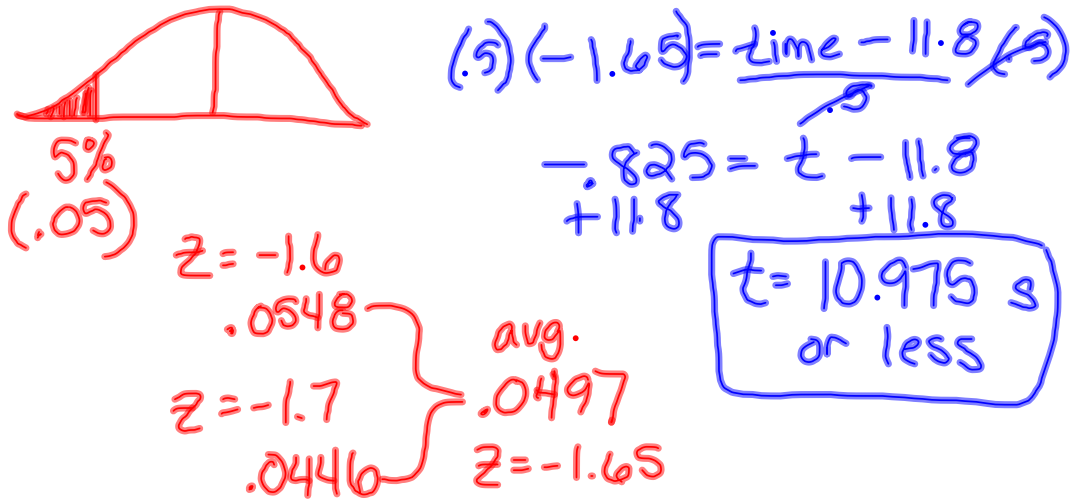 5%
(.05)
z = -1.6
.0548
z = -1.7
.0446
avg.
.0497
z = -1.65
(.5)(-1.65) = time - 11.8 (.5)
.5
-.825 = t - 11.8
+11.8 +11.8
t = 10.975 s
or less